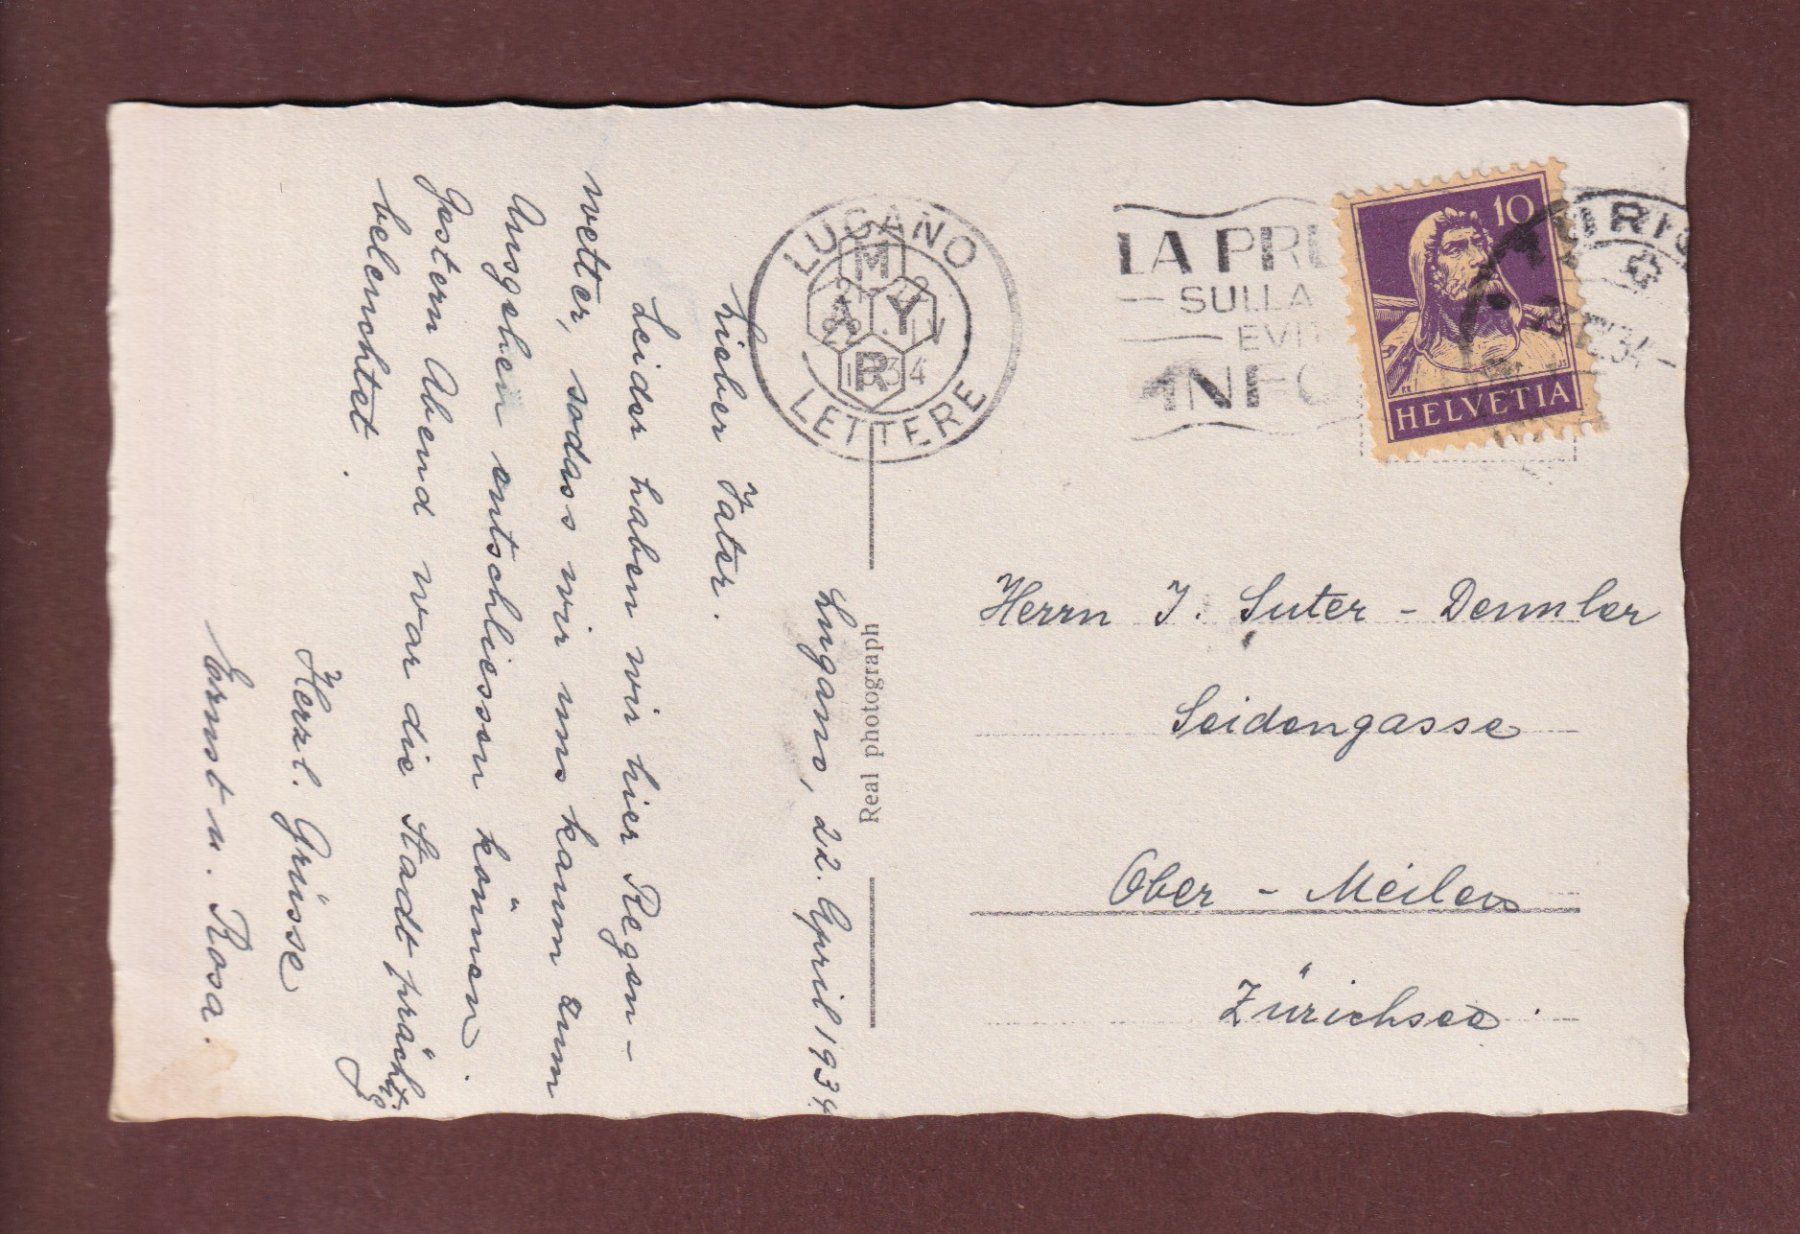 Lugano, 22. April 1934
Lieber Vater.
Leider haben wir hier Regen-
wetter, sodass wir uns kaum zum
Ausgehen entschliessen können.
Gestern Abend war die Stadt prächtig
beleuchtet.
Herzl. Grüsse
Ernst u. Rosa.
Real photograph
LUGANO
LETTERE
22. IV
1934
M
A Y
R
LA PR
SULLA
EVIT
INFO
10
HELVETIA
Herrn J. Suter-Demmler
Seidengasse
Ober-Meilen
Zürichsee.